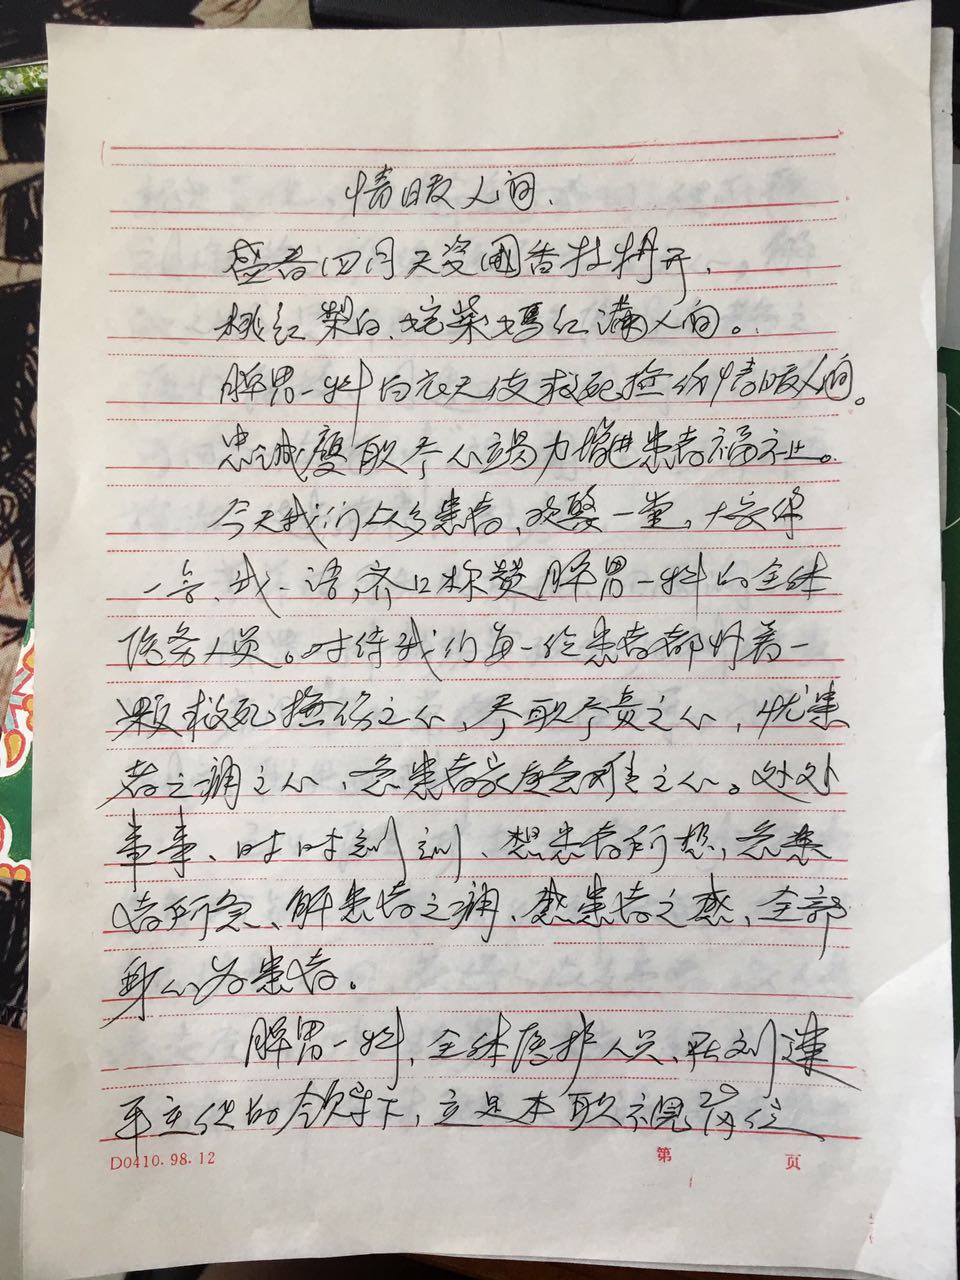 情暖人间.
盛春四月天姿国香牡丹开,
桃红梨白、姹紫嫣红满人间。
脾胃一科白衣天使救死扶伤情暖人间。
忠诚履职尽心竭力增进患者福祉。
今天我们众多患者、欢聚一堂,大家你
一言、我一语,齐口称赞脾胃一科的全体
医务人员。对待我们每一位患者都怀着一
颗救死扶伤之心,尽职尽责之心,忧患
者之痛之心、急患者家庭急难之心。处处
事事、时时刻刻、想患者所想,急患
者所急、解患者之痛、愁患者之愁、全部
身心为患者。
脾胃一科,全体医护人员、在刘建
平主任的领导下,立足本职岗位
D0410.98.12
第 页